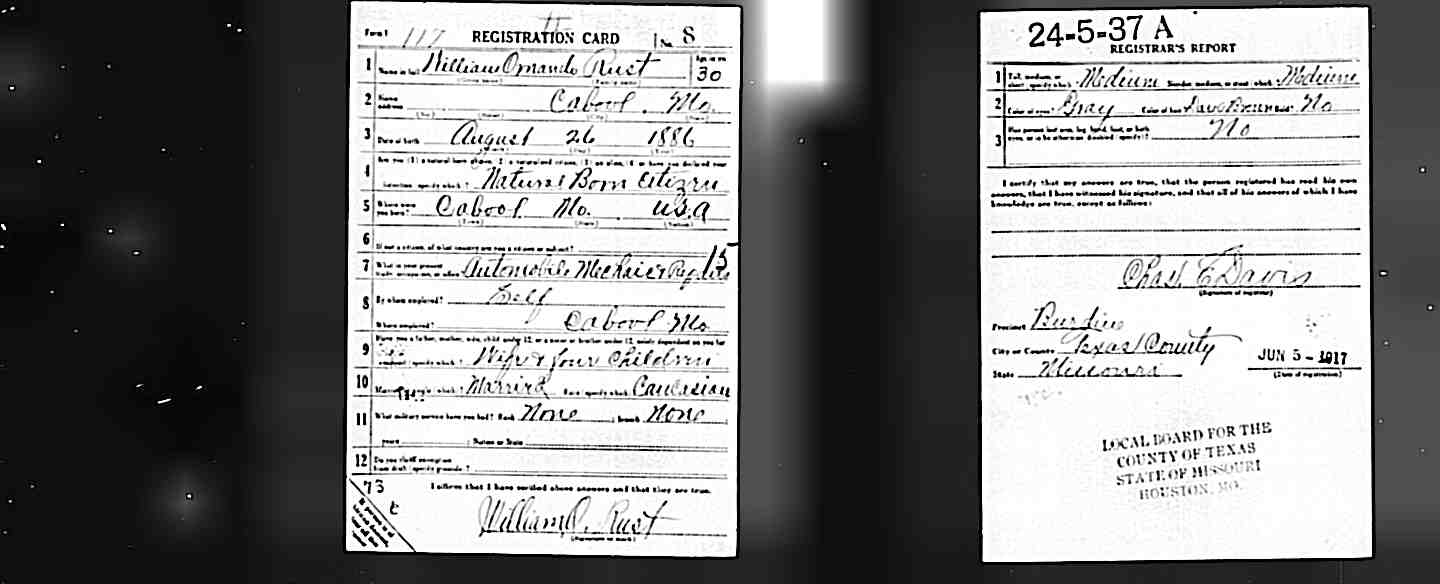 Form 1 117 REGISTRATION CARD No. 8
1 Name in full William Omando Rust Age, in yrs. 30
(Given name) (Family name)
2 Home address Cabool Mo.
(No.) (Street) (City) (State)
3 Date of birth August 26 1886
(Month) (Day) (Year)
4 Are you (1) a natural born citizen, (2) a naturalized citizen, (3) an alien, (4) or have you declared your
intention (specify which)? Natural Born Citizen
5 Where were you born? Cabool Mo. U.S.A
(Town) (State) (Nation)
6 If not a citizen, of what country are you a citizen or subject?
15
7 What is your present trade, occupation, or office? Automobile
8 By whom employed? Self
Where employed? Cabool Mo.
9 Have you a father, mother, wife, child under 12, or a sister or brother under 12, solely dependent on you for
support (specify which)? Wife & four Children
10 Married or single (which)? Married Race (specify which)? Caucasian
11 What military service have you had? Rank None ; branch None ;
years ; Nation or State
12 Do you claim exemption from draft (specify grounds)?
I affirm that I have verified above answers and that they are true.
73
William O. Rust
(Signature or mark)
24-5-37 A
REGISTRAR'S REPORT
1 Tall, medium, or short (specify which)? Medium Slender, medium, or stout (which)? Medium
2 Color of eyes? Gray Color of hair? Bald? No
3 Has person lost arm, leg, hand, foot, or both eyes, or is he otherwise disabled (specify)? No
I certify that my answers are true, that the person registered has read his own
answers, that I have witnessed his signature, and that all of his answers of which I have
knowledge are true, except as follows:
Chas. E Davis
(Signature of registrar)
Precinct Burdine
City or County Texas County
State Missouri
JUN 5 - 1917
(Date of registration)
LOCAL BOARD FOR THE
COUNTY OF TEXAS
STATE OF MISSOURI
HOUSTON, MO.